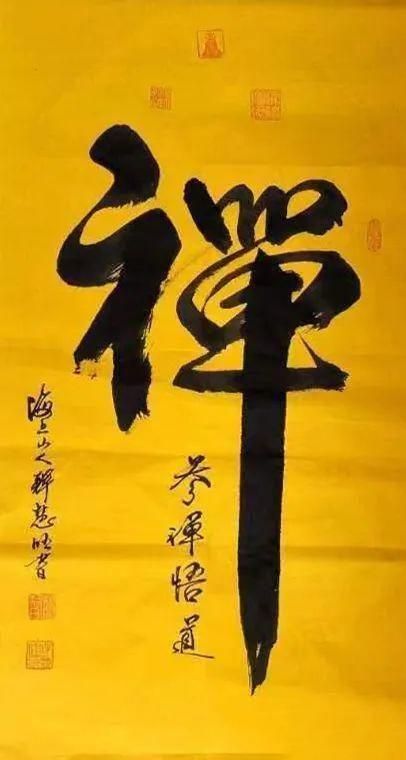 禪
參禪悟道
海上山人釋慧明書